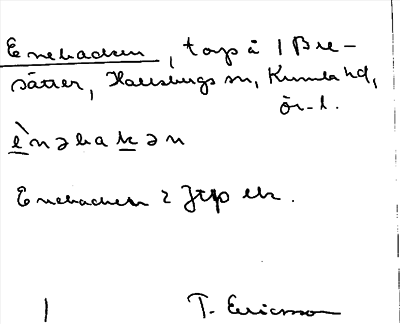 Enebacken, torp å 1 Bre-
sätter, Hallsbergs sn, Kumla hd,
Ör. l.
ènəbakən
Enebacken 2 Jtp ek.
T. Ericsson